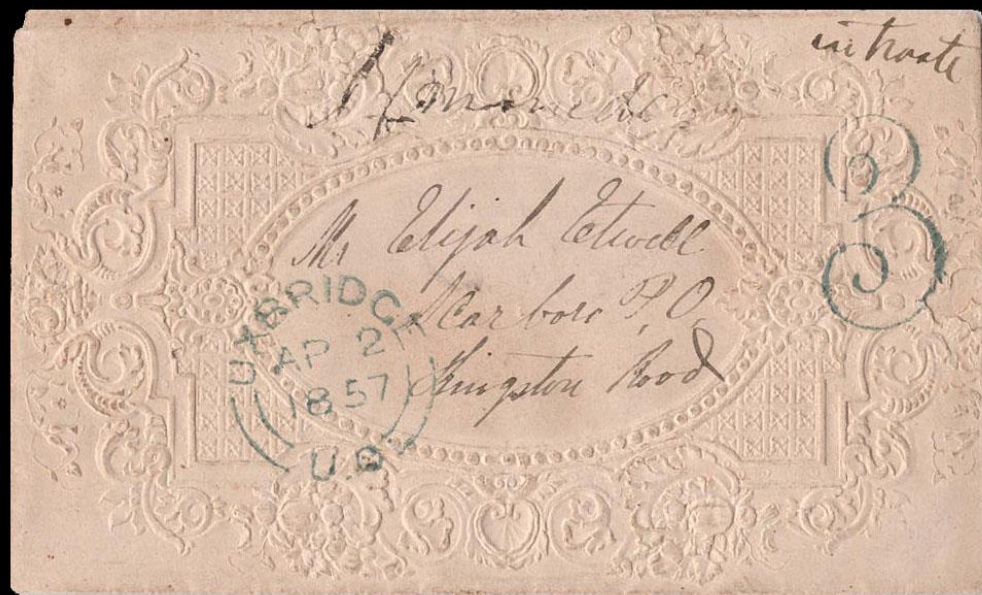 in haste
3
Mr Elijah Etwell
Scarboro P.O.
Kingston Road
UXBRIDGE
AP 21
1857
U.C